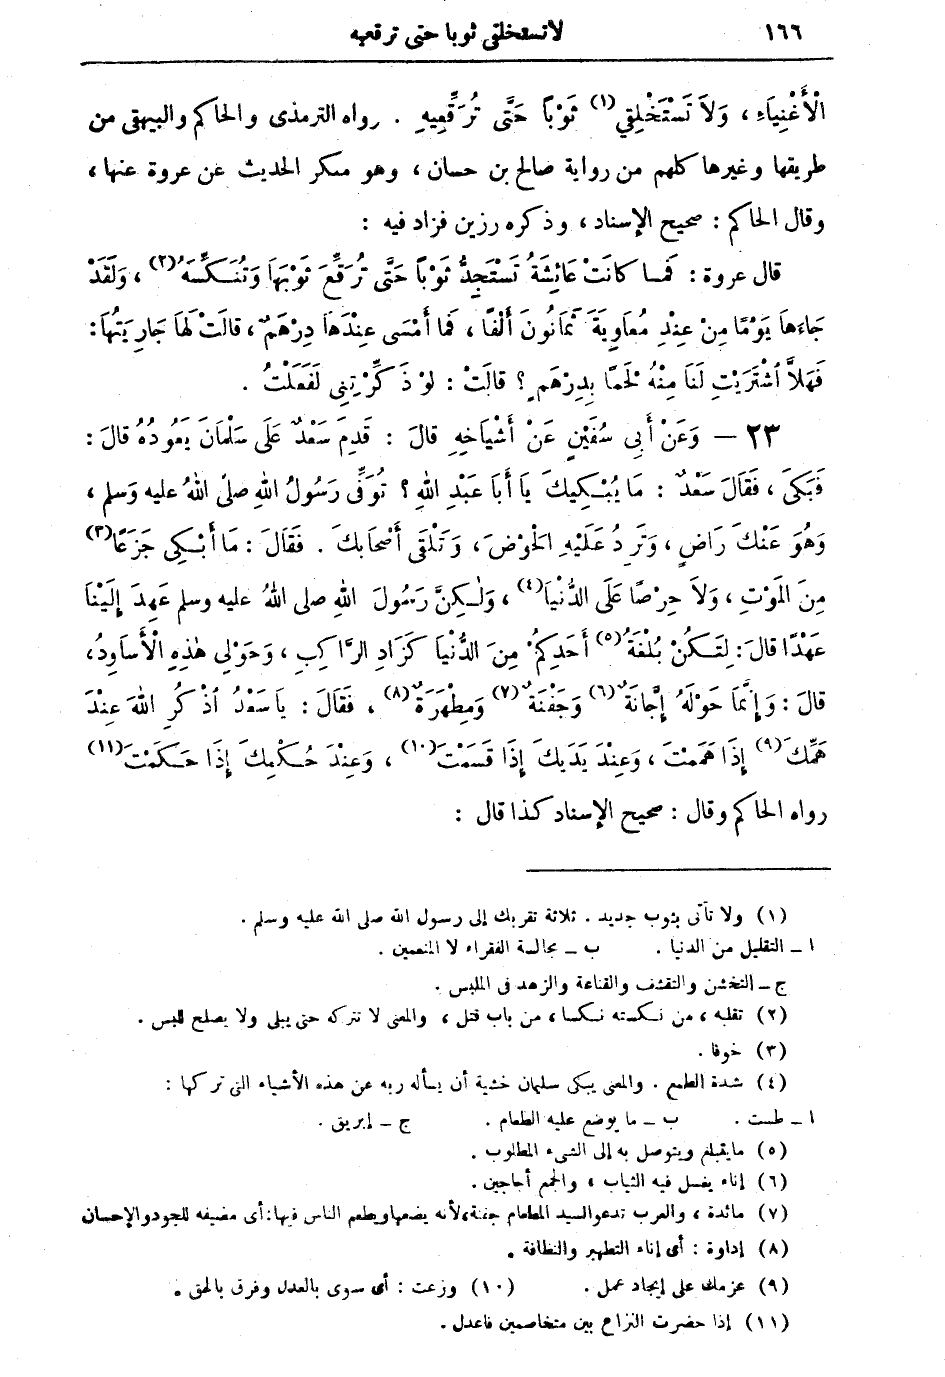 ١٦٦ لاتستخلقى ثوبا حتى ترقعيه
الْأَغْنِيَاءِ ، وَلاَ تَسْتَخْلِقِي (١) ثَوْباً حَتَّى تُرَقِّعِيهِ . رواه الترمذى والحاكم والبيهقى من
طريقها وغيرها كلهم من رواية صالح بن حسان ، وهو منكر الحديث عن عروة عنها ،
وقال الحاكم : صحيح الإسناد ، وذكره رزين فزاد فيه :
قال عروة : فما كانَتْ عَائِشَةُ تَسْتَجِدُّ ثَوْباً حَتَّى تُرَقِّعَ ثَوْبَهَا وَتُنَكِّسَهُ (٢) ، وَلَقَدْ
جَاءَهَا يَوْمًا مِنْ عِنْدِ مُعَاوِيَةَ ثَمَانُونَ أَلْفًا ، فَمَا أَمْسَى عِنْدَهَا دِرْهَمٌ ، قالَتْ لَهَا جَارِيَتُهَا :
فَهَلاَّ اشْتَرَيْتِ لَنَا مِنْهُ لَحْمًا بِدِرْهَمٍ ؟ قالَتْ : لَوْ ذَكَّرْتِنِى لَفَعَلْتُ .
٢٣ – وَعَنْ أَبِى سُفْيَنٍ عَنْ أَشْيَاخِهِ قالَ : قَدِمَ سَعْدٌ عَلَى سَلْمَانَ يَعُودُهُ قالَ :
فَبَكَى ، فَقَالَ سَعْدٌ : مَا يُبْكِيكَ يَا أَبَا عَبْدِ اللهِ ؟ تُوُفِّىَ رَسُولُ اللهِ صلى اللهُ عليه وَسلم ،
وَهُوَ عَنْكَ رَاضٍ ، وَتَرِدُ عَلَيْهِ الحَوْضَ ، وَتَلْقَى أَصْحَابَكَ . فَقَالَ : مَا أَبْكِى جَزَعًا (٣)
مِنَ المَوْتِ ، وَلاَ حِرْصًا عَلَى الدُّنْيَا (٤) ، وَلٰكِنَّ رَسُولَ اللهِ صلى اللهُ عليه وسلم عَهِدَ إِلَيْنَا
عَهْدًا قالَ : لِتَكُنْ بُلْغَةُ (٥) أَحَدِكُمْ مِنَ الدُّنْيَا كَزَادِ الرَّاكِبِ ، وَحَوْلِى هٰذِهِ الْأَسَاوِدُ ،
قالَ : وَإِنَّمَا حَوْلَهُ إِجَّانَةٌ (٦) وَجَفْنَةٌ (٧) وَمِطْهَرَةٌ (٨) ، فَقَالَ : يَا سَعْدُ اذْكُرِ اللهَ عِنْدَ
هَمِّكَ (٩) إِذَا هَمَمْتَ ، وَعِنْدَ يَدَيْكَ إِذَا قَسَمْتَ (١٠) ، وَعِنْدَ حُكْمِكَ إِذَا حَكَمْتَ (١١)
رواه الحاكم وقال : صحيح الإسناد كذا قال :
(١) ولا تأتى بثوب جديد . ثلاثة تقربك إلى رسول الله صلى الله عليه وسلم .
ا ــ التقليل من الدنيا . ب ــ مجالسة الفقراء لا المنعمين .
ج ــ التخشن والتقشف والقناعة والزهد فى الملبس .
(٢) تقلبه ، من نكسته نكسا ، من باب قتل ، والمعنى لا تتركه حتى يبلى ولا يصلح للبس .
(٣) خوفا .
(٤) شدة الطمع . والمعنى يبكى سليمان خشية أن يسأله ربه عن هذه الأشياء التى تركها :
ا ــ طست . ب ــ ما يوضع عليه الطعام . ج ــ إبريق .
(٥) مايتبلغ ويتوصل به إلى الشىء المطلوب .
(٦) إناء يغسل فيه الثياب ، والجمع أجاجين .
(٧) مائدة ، والعرب تدعو السيد المطعام جفنة ، لأنه يضعها ويطعم الناس فيها : أى مضيفه للجود والإحسان
(٨) إداوة : أى إناء التطهير والنظافة .
(٩) عزمك على إيجاد عمل . (١٠) وزعت : أى سوى بالعدل وفرق بالحق .
(١١) إذا حضرت النزاع بين متخاصمين فاعدل .